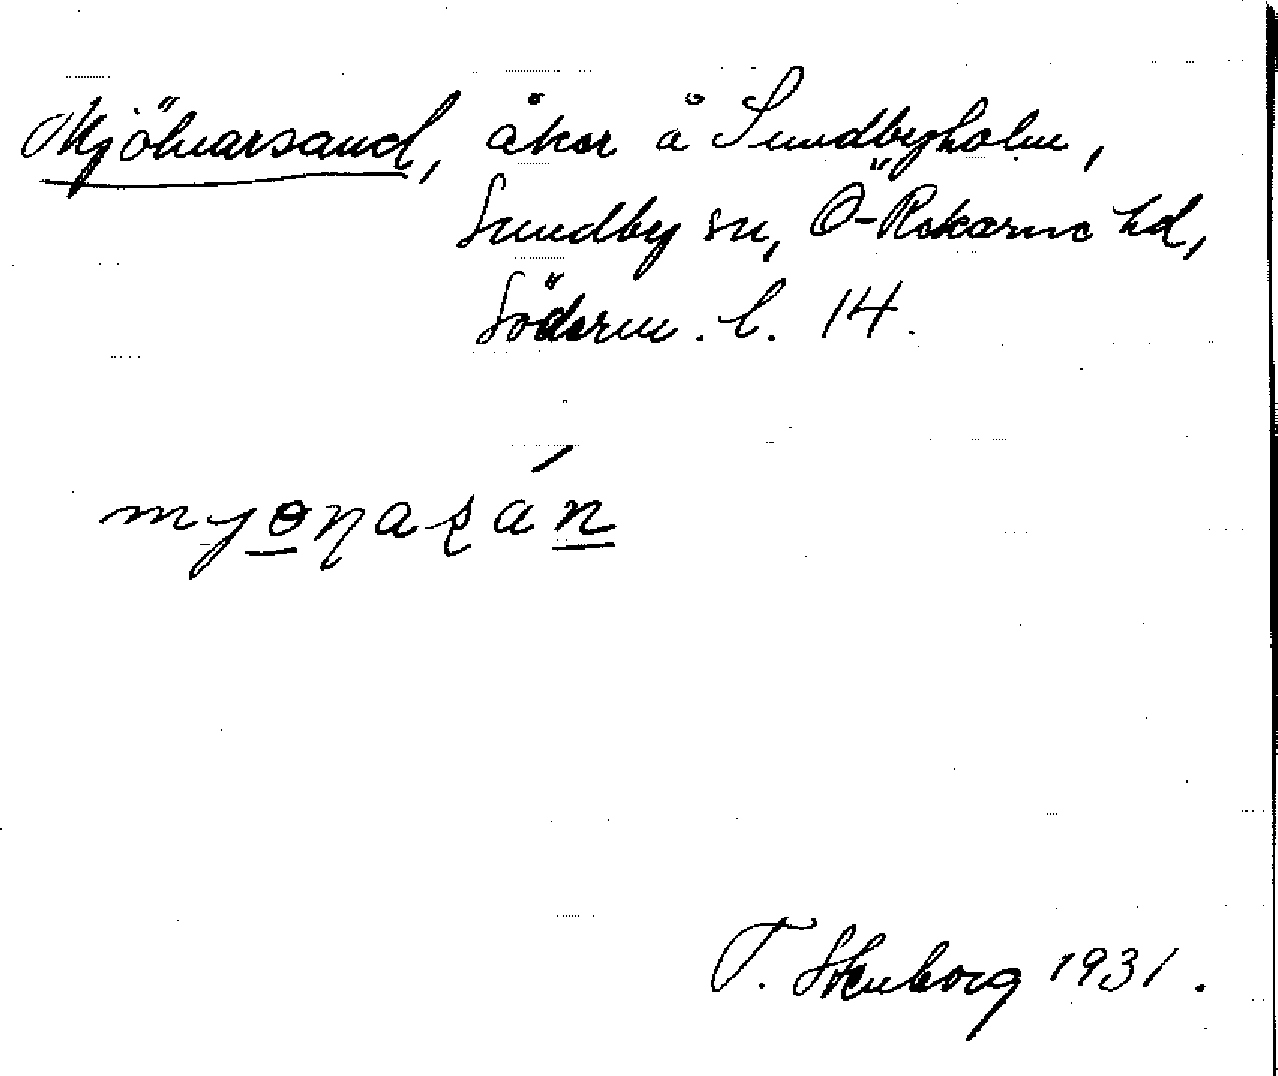 Mjölnarsand, åker å Sundbyholm,
Sundby sn, Ö-Rekarne hd,
Söderm. l. 14.
T. Stenborg 1931.